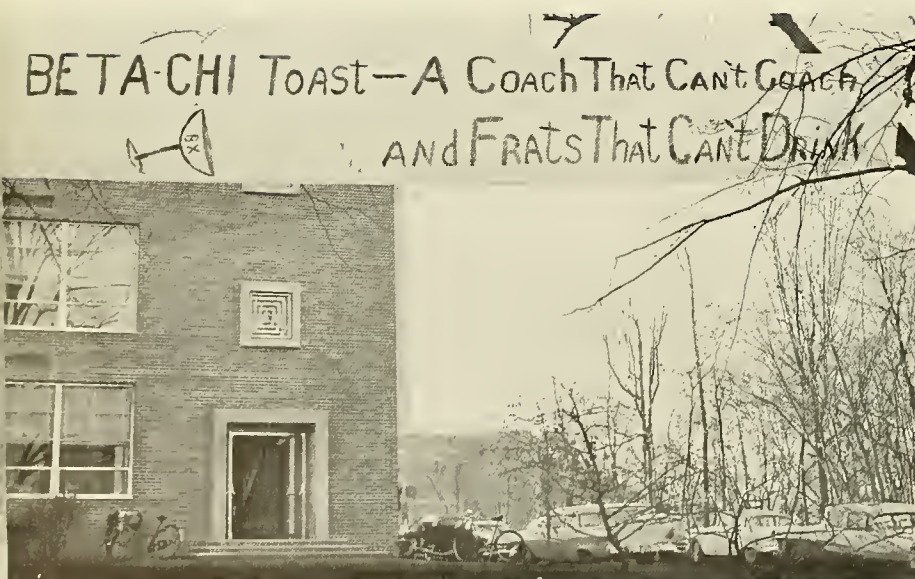 BETA-CHI TOAST — A COACH THAT CAN'T COACH
AND FRATS THAT CAN'T DRINK